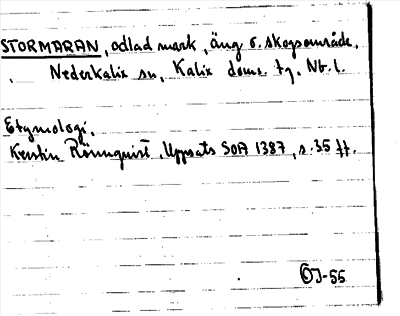 STORMARAN, odlad mark, äng o. skogsområde,
Nederkalix sn, Kalix doms. tg. Nb. l.
Etymologi.
Kerstin Rönnquist, Uppsats SOA 1387, s. 35 ff.
OJ-55